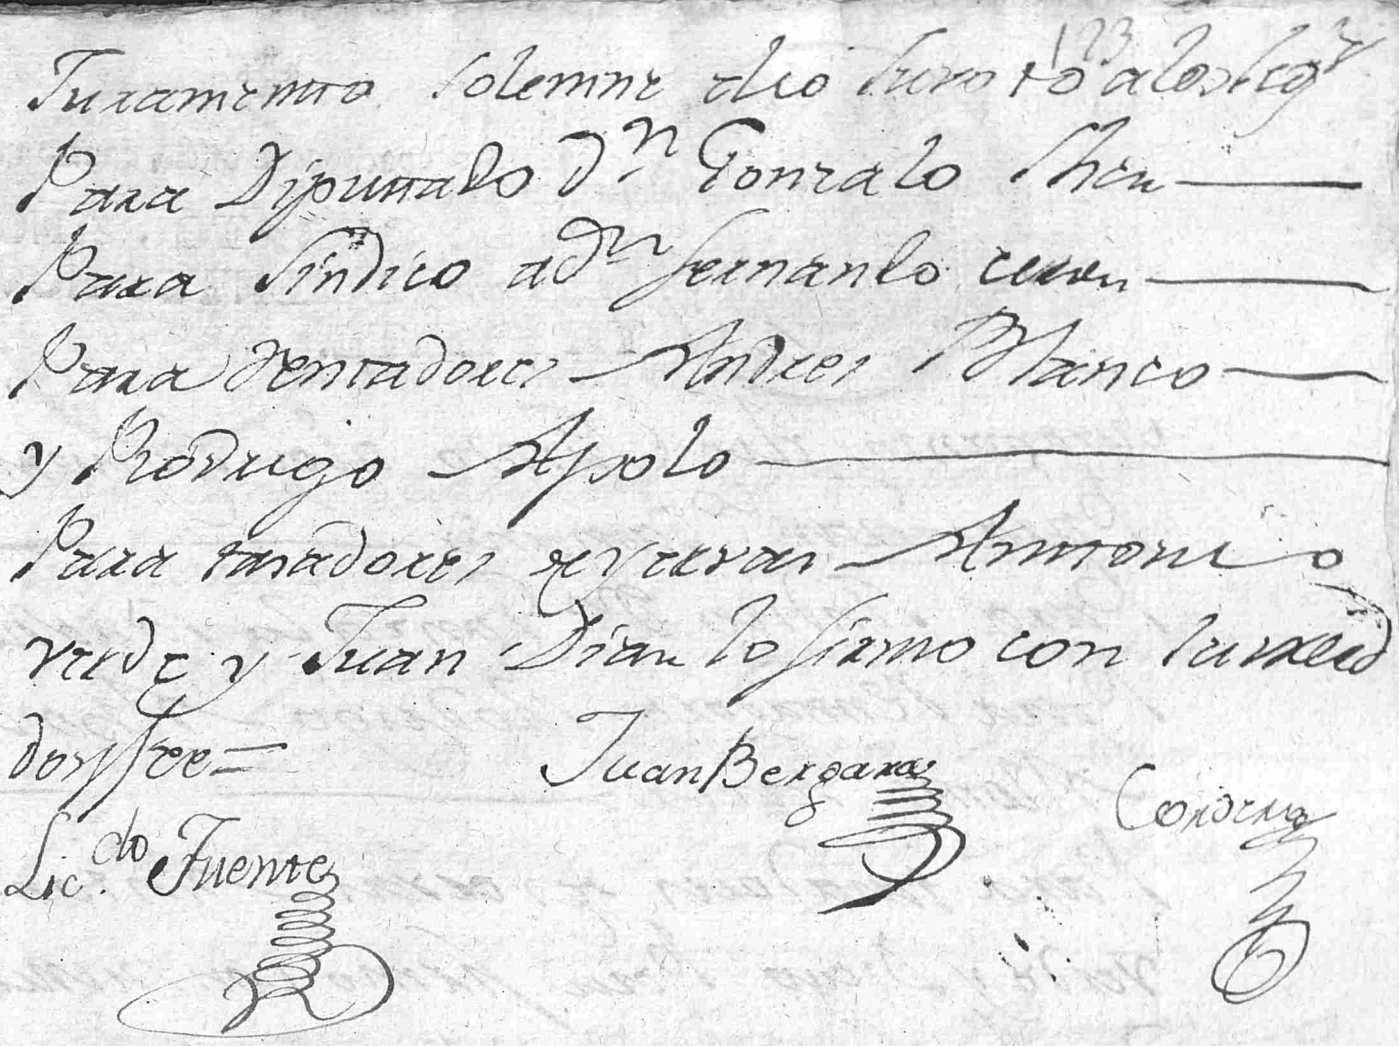 123
Juramento solemne dio su voto a los sig.s
Para Diputado Dn Gonzalo
Para Sindico a Dn fernando ceron
Para Tentadores Andres Blanco
y Rodrigo Apolo
Para tasadores de yervas Antonio
verde y Juan Dian lo firmo con su mrd
doy fee =
Juan Bergara
Cordero
Lic.do Fuente